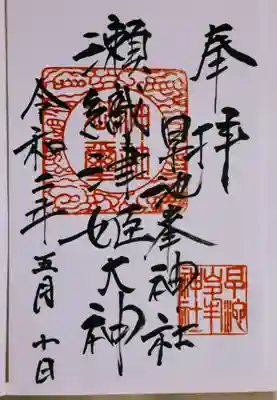 奉拝
早池峯神社
瀬織津姫大神
令和二年 五月 十日
早池峯神社